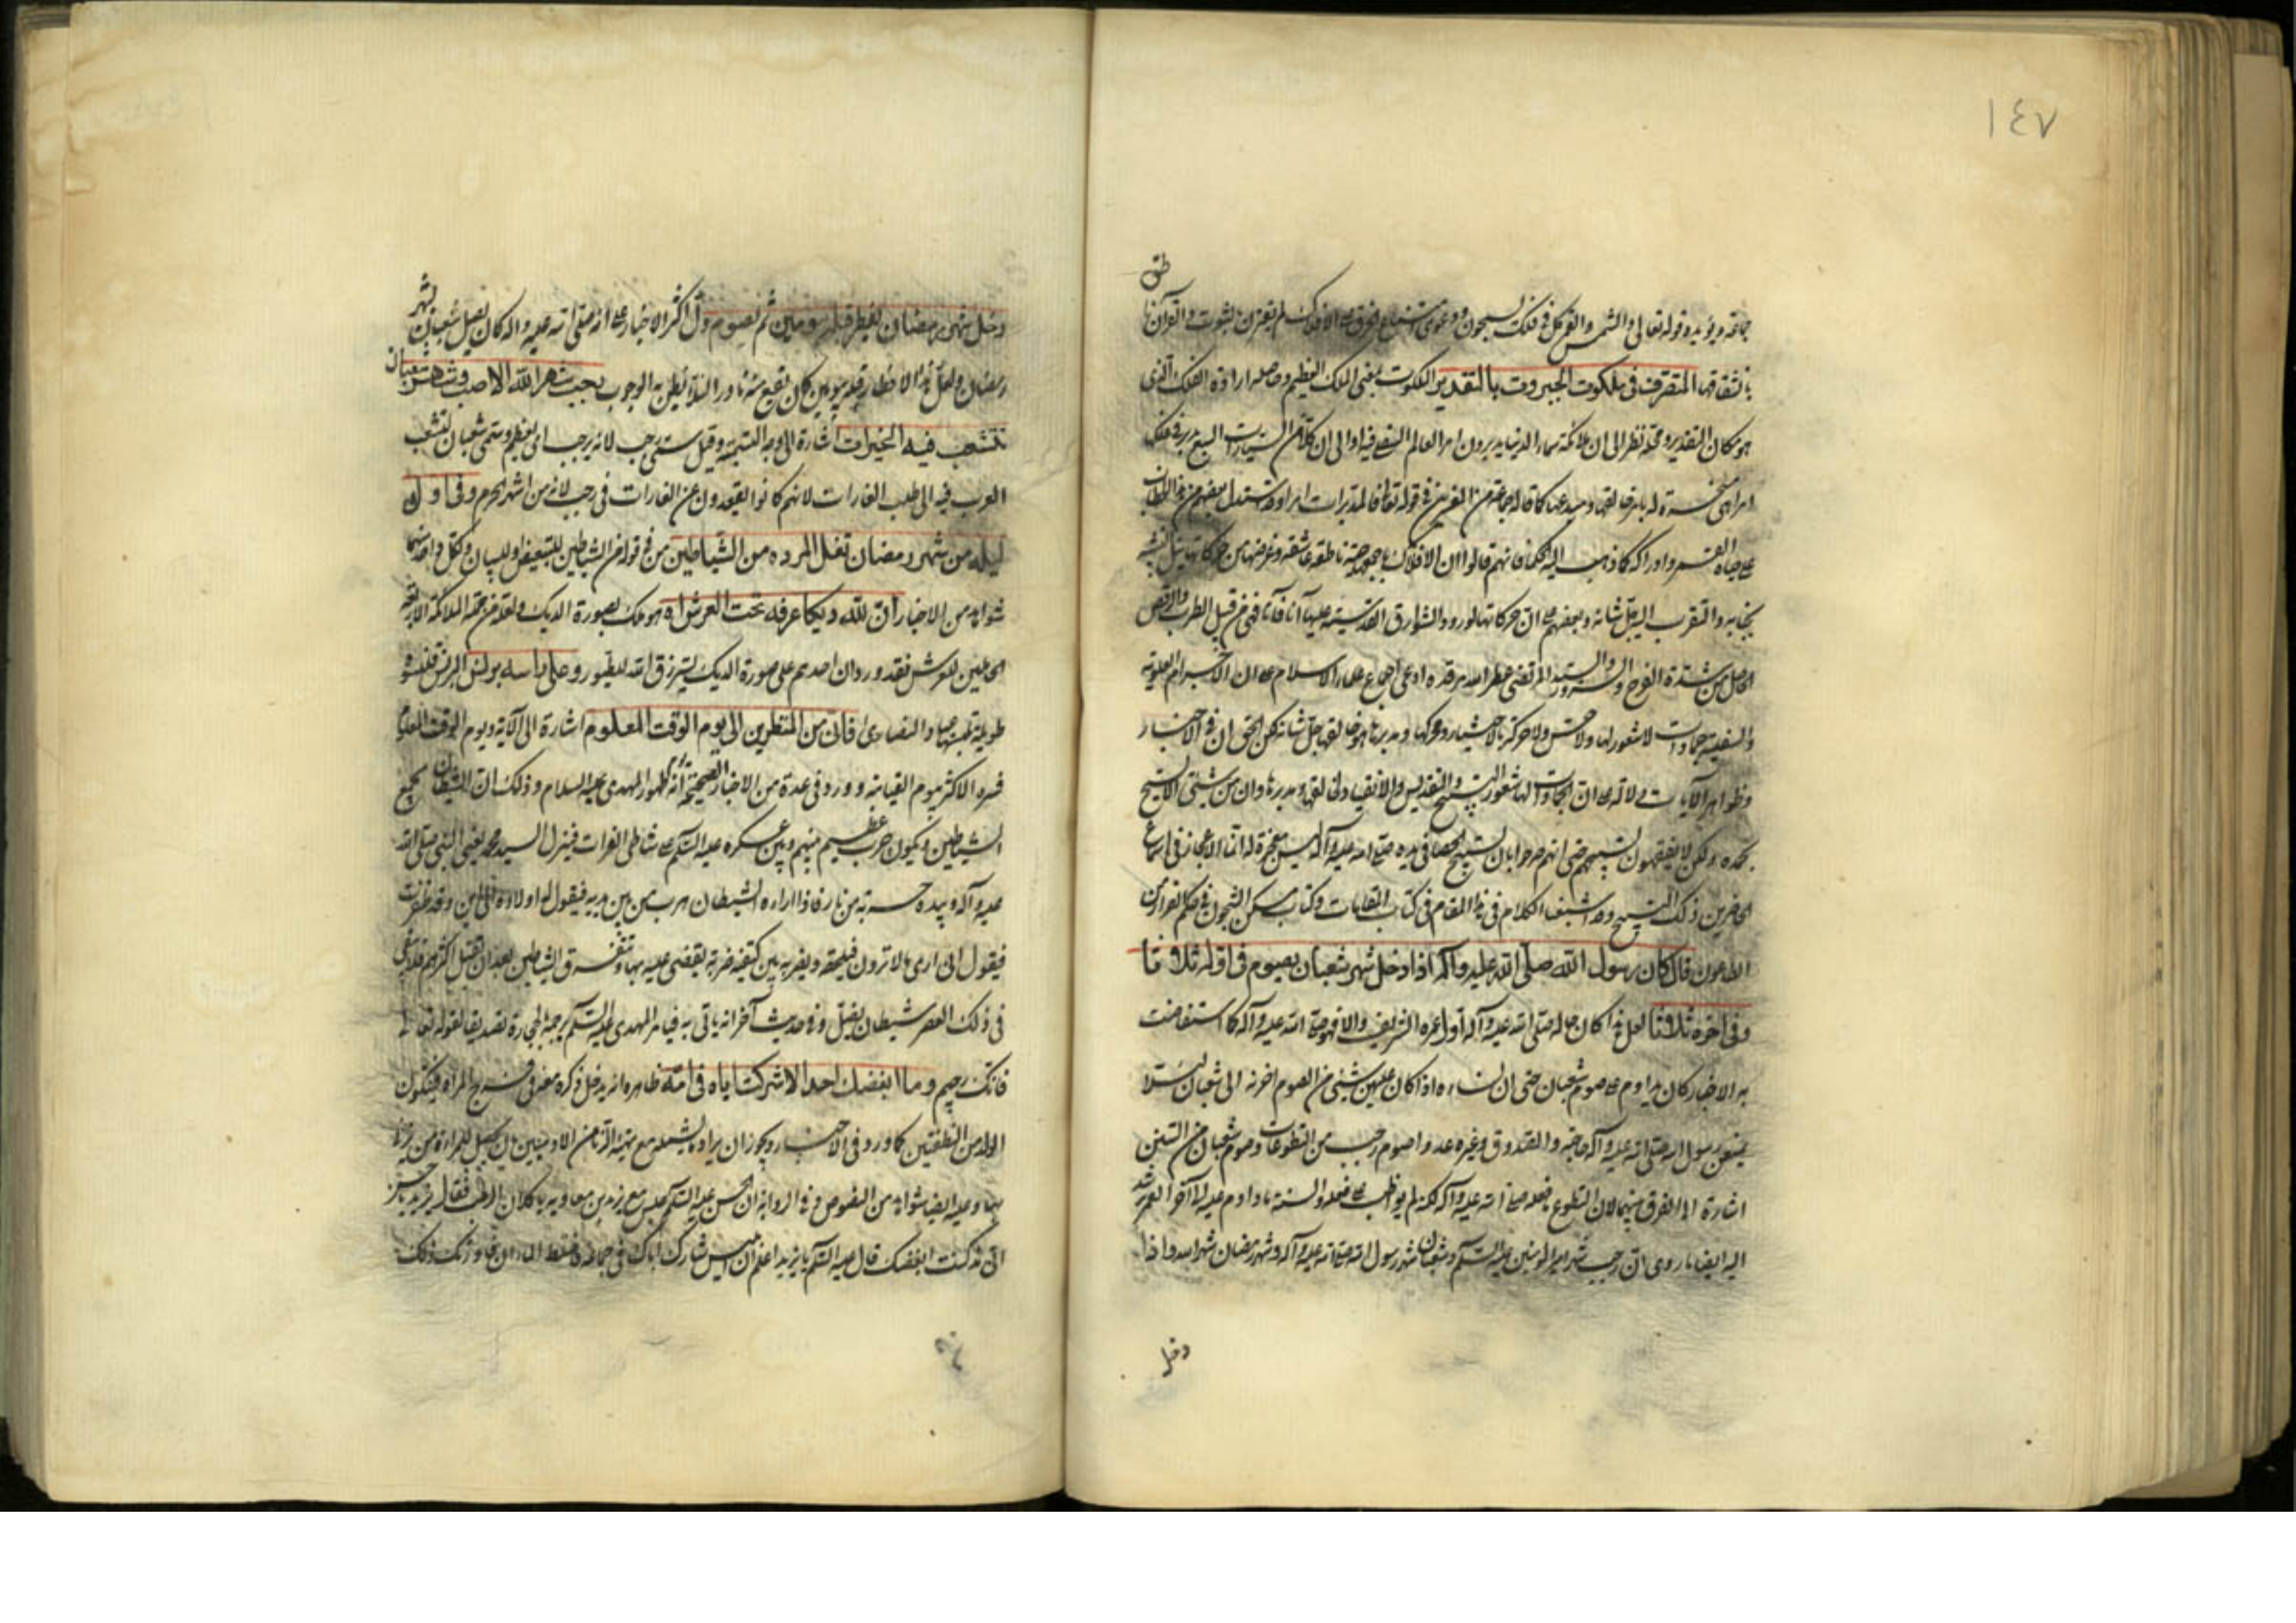 ١٤٧
جماعة ويؤيده قوله تعالى والشمس والقمر كل في فلك يسبحون ودعوى امتناع الخرق على الافلاك لم يقترن بثبوت والقرآن
بانشقاقها المتصرف في ملكوت الجبروت بالتقدير الملكوت بمعنى الملك العظيم وحاصله ارادة الفلك الذي
هو مكان التقدير ومحله نظرا الى ان ملائكة سماء الدنيا يدبرون امر العالم السفلي فيه او الى ان كلا من السيارات السبع يدبر في فلك
امرا هي مسخرة له بامر خالقها ومبدعها كما قاله جماعة من المفسرين في قوله تعالى فالمدبرات امرا وقد استدل بعضهم من هذا الخطاب
على حياة القمر وادراكه كما ذهب اليه الحكما فانهم قالوا ان الافلاك باجمعها حية ناطقة عاشقة وغرضها من حركاتها نيل التشبه
بجنابه والتقرب اليه جل شانه وبعضهم على ان حركاتها لورود الشوارق القدسية عليها آنا فآنا فهي من قبيل الطرب والرقص
الحاصل من شدة الفرح والسرور والسيد المرتضى عطر الله مرقده ادعى اجماع علماء الاسلام على ان الاجرام العلوية
والسفلية جمادات لا شعور لها ولا حس ولا حركة بالاختيار ومحركها ومدبرها هو خالقها جل شانه لكن الحق ان في الاخبار
وظواهر الآيات دلالة على ان الجمادات لها شعور التسبيح والتقديس والانقياد لخالقها ومدبرها وان من شيئ الا يسبح
بحمده ولكن لا يفقهون تسبيحهم حتى انهم صرحوا بان تسبيح الحصا في يده صلى الله عليه وآله ليس معجزة له انما الاعجاز في اسماع
الحاضرين ذلك التسبيح وقد اشبعنا الكلام في هذا المقام في كتاب المقامات وكتاب مسكن الشجون في حكم الفرار من
الطاعون قال كان رسول الله صلى الله عليه وآله اذا دخل شهر شعبان يصوم في اوله ثلاثا
وفي اخره ثلاثا لعل هذا كان حاله صلى الله عليه وآله اول عمره الشريف والا فهو صلى الله عليه وآله كما استفاضت
به الاخبار كان يداوم على صوم شعبان حتى ان نساءه اذا كان عليهن شيئ من الصوم اخرنه الى شعبان لئلا
يمنعن رسول الله صلى الله عليه وآله حاجته والصدوق وغيره عدوا صوم رجب من التطوعات وصوم شعبان من السنن
اشارة الى الفرق بينهما لان التطوع فعله صلى الله عليه وآله لكنه لم يواظب على فعله والسنة ما داوم عليه الى آخر العمر
اليه ايضا ما روي ان رجب شهر امير المؤمنين عليه السلام وشعبان شهر رسول الله صلى الله عليه وآله وشهر رمضان شهر الله واذا
دخل
دخل شهر رمضان يفطر قبله بيومين ثم يصوم دل اكثر الاخبار على انه صلى الله عليه واله كان يصل شعبان بشهر
رمضان ولعل هذا الافطار قبله بيومين كان يقع منه نادرا لئلا يظن به الوجوب رجب شهر الله الاصب وشهر شعبان
تتشعب فيه الخيرات اشارة الى وجه التسمية وقيل سمي رجب لانه يرجب اي يعظم وسمي شعبان لتشعب
العرب فيه الى طلب الغارات لانهم كانوا يقعدون عن الغارات في رجب لانه من اشهر الحرم وفي اول
ليلة من شهر رمضان تغل المردة من الشياطين من في قوله من الشياطين للتبعيض او للبيان ولكل واحد منهما
شواهد من الاخبار ان لله ديكا عرفه تحت العرش اه هو ملك بصورة الديك ولعله من جملة الملائكة الاربعة
الحاملين للعرش فقد ورد ان احدهم على صورة الديك يسترزق الله للطيور وعلى راسه برنس البرنس قلنسوة
طويلة تلبسها النصارى فانك من المنظرين الى يوم الوقت المعلوم اشارة الى الآية ويوم الوقت المعلوم
فسره الاكثر بيوم القيامة وورد في عدة من الاخبار الصحيحة انه يوم ظهور المهدي عليه السلام وذلك ان الشيطان يجمع
الشياطين ويكون حرب عظيم بينهم وبين عسكره عليه السلام على شاطئ الفرات فينزل السيد محمد يعني النبي صلى الله
عليه وآله وبيده حربة من نار فاذا راه الشيطان هرب من بين يديه فيقول له اولاده الى اين وقد ظفرت
فيقول اني ارى ما لا ترون فيلحقه ويضربه بين كتفيه ضربة يقضي عليه بها وتتفرق الشياطين بعد ان يقتل اكثرهم فلا يبقى
في ذلك العصر شيطان يضل وفي حديث آخر انه ياتي به في ايام المهدي عليه السلام يرجمه بالحجارة تصديقا لقوله تعالى
فانك رجيم وما ابغضك احد الا شركت اباه في امه ظاهره انه يدخل ذكره معه في فرج المراه فيتكون
الولد من النطفتين كما ورد في الاخبار ويجوز ان يراد ما يشمله مع تهيئة الزنا من الادميين
بها وعليه ايضا شواهد من النصوص وفي الرواية ان الحسن عليه السلام جلس مع يزيد بن معاوية ياكلان الرطب فقال يزيد يا حسن
اني مذ كنت ابغضك قال عليه السلام يا يزيد اعلم ان ابليس شارك اباك في جماعه فاختلط الماءان فاورثك ذلك